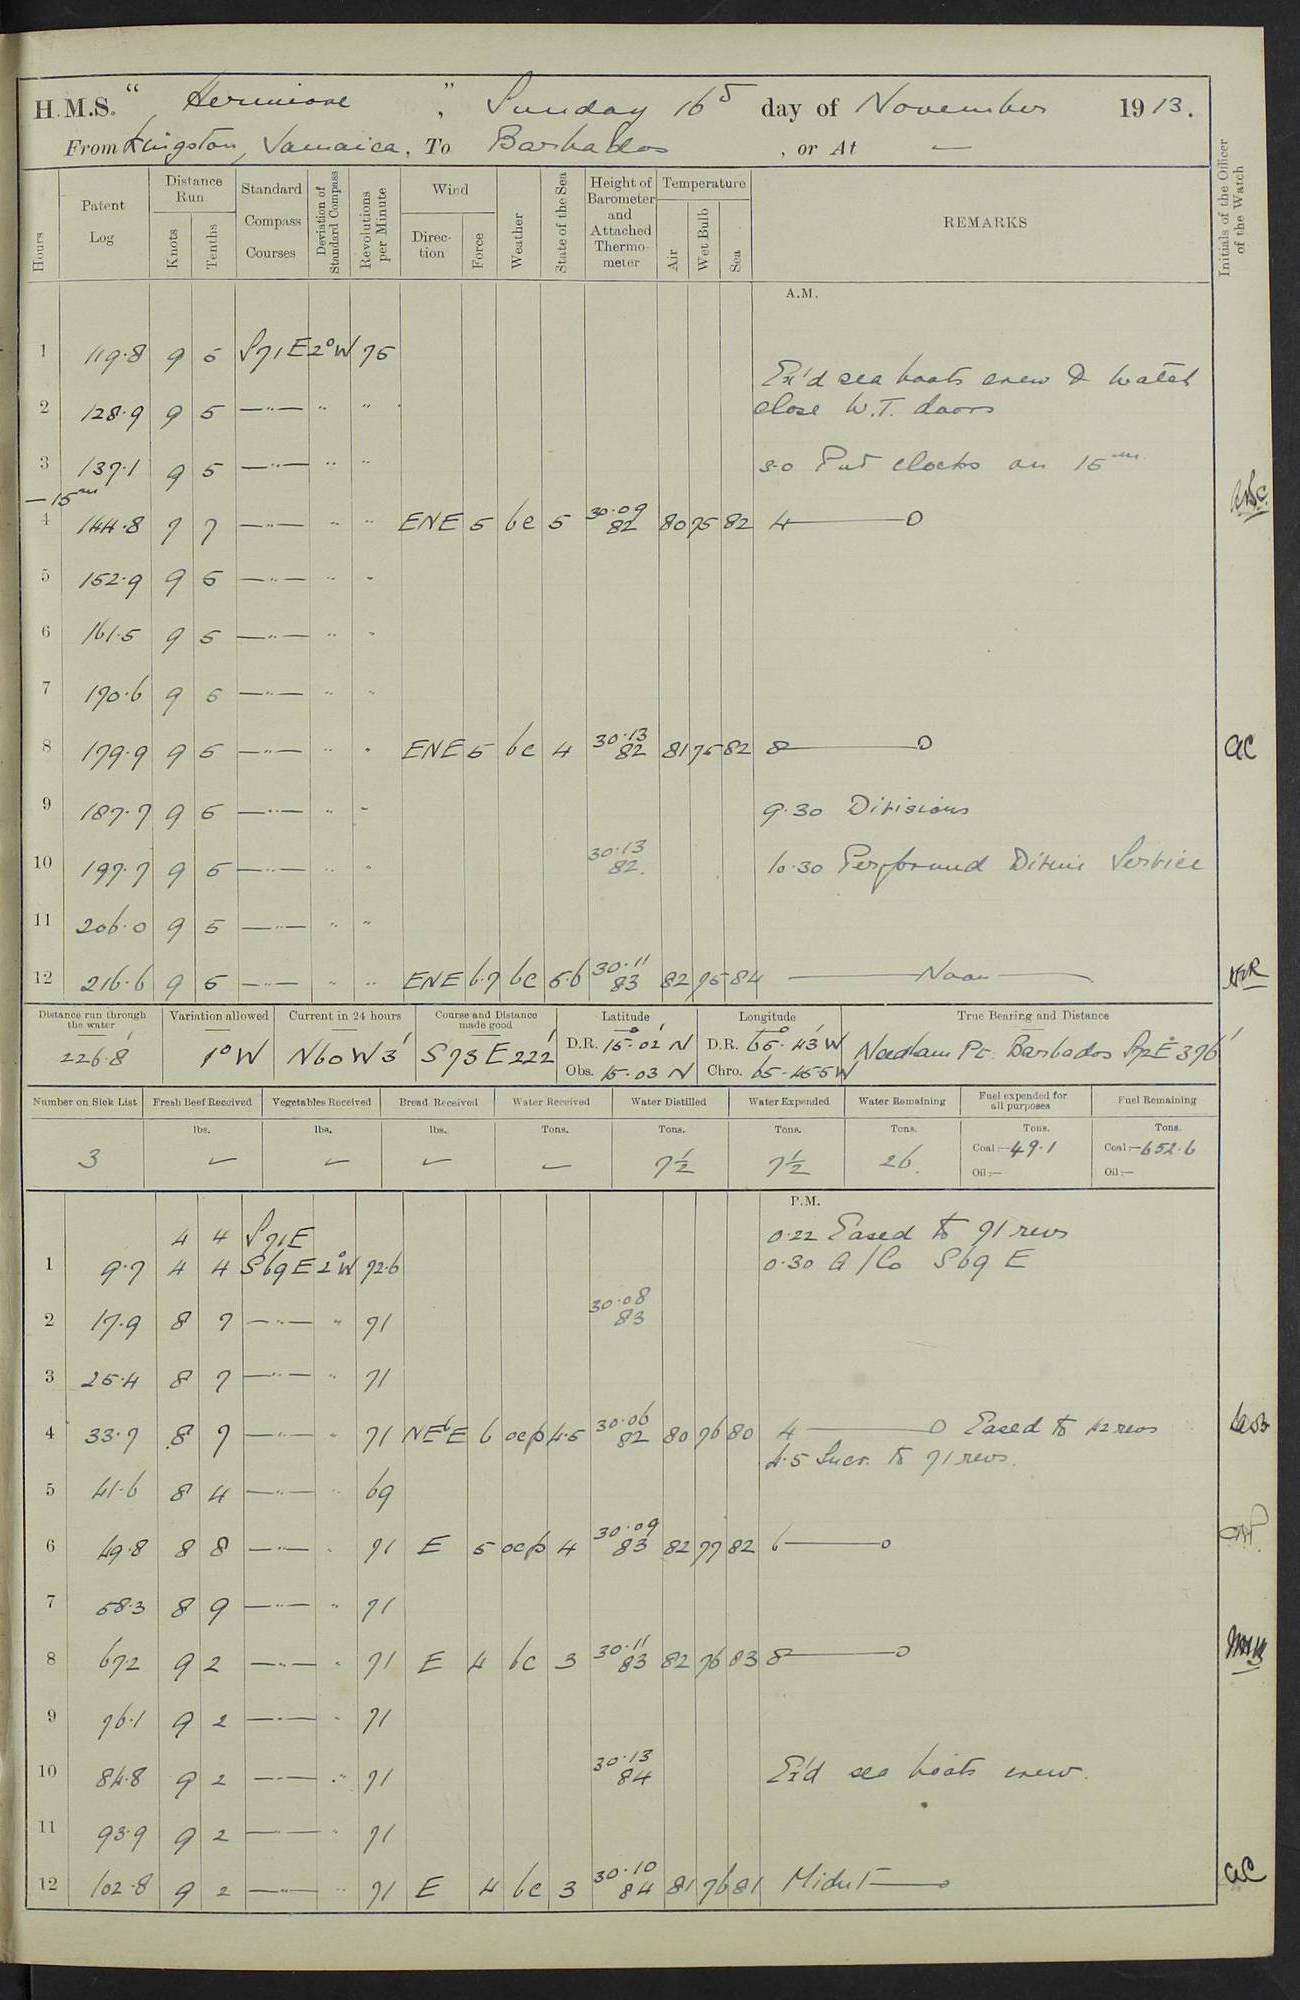 H.M.S. " Hermione ", Sunday 16th day of November 1913.
From Kingston, Jamaica, To Barbados, or At —
Hours
Patent Log
Distance Run
Knots
Tenths
Standard Compass Courses
Deviation of Standard Compass
Revolutions per Minute
Wind
Direction
Force
Weather
State of the Sea
Height of Barometer and Attached Thermometer
Temperature
Air
Wet Bulb
Sea
REMARKS
Initials of the Officer of the Watch
A.M.
1 119.8 9 5 S71E 2°W 75
Ex'd sea boats crew & watch
2 128.9 9 5 —"— " " close W.T. doors
3 137.1 9 5 —"— " " 3.0 Put clocks on 15 min.
— 15 min
4 144.8 7 7 —"— " " ENE 5 bc 5 30.09 82 80 75 82 4
5 152.9 9 5 —"— " "
6 161.5 9 5 —"— " "
7 170.6 9 5 —"— " "
8 179.9 9 5 —"— " " ENE 5 bc 4 30.13 82 81 75 82 8 —— 0 AC
9 187.7 9 5 —"— " " 9.30 Divisions
10 197.7 9 5 —"— " " 30.13 82. 10.30 Performed Divine Service
11 206.0 9 5 —"— " "
12 216.6 9 5 —"— " " ENE 6.7 bc 5.6 30.11 83 82 75 84 —— Noon ——
Distance run through the water
Variation allowed
Current in 24 hours
Course and Distance made good
Latitude
Longitude
True Bearing and Distance
226.8' 1°W N60W 3' S73E 222' D.R. 15°.02' N D.R. 65°.43' W Needham Pt. Barbados S72E 376'
Obs. 15.03 N Chro. 65.45.5W
Number on Sick List
Fresh Beef Received
Vegetables Received
Bread Received
Water Received
Water Distilled
Water Expended
Water Remaining
Fuel expended for all purposes
Fuel Remaining
lbs. lbs. lbs. Tons. Tons. Tons. Tons. Tons. Tons.
3 7½ 7½ 26. Coal:— 49.1 Coal:— 652.6
Oil:— Oil:—
P.M.
4 4 S71E 0.22 Eased to 71 revs
1 9.7 4 4 S69E 2°W 72.6 0.30 A/Co S69E
2 17.9 8 7 —"— " 71 30.08 83
3 25.4 8 7 —"— " 71
4 33.7 8 7 —"— " 71 NEbE 6 ocp 4.5 30.06 82 80 76 80 4 —— 0 Eased to 42 revs
4.5 Incr. to 71 revs.
5 41.6 8 4 —"— " 69
6 49.8 8 8 —"— " 71 E 5 ocp 4 30.09 83 82 77 82 6 —— 0
7 58.3 8 9 —"— " 71
8 67.2 9 2 —"— " 71 E 4 bc 3 30.11 83 82 76 83 8 —— 0
9 76.1 9 2 —"— " 71
10 84.8 9 2 —"— " 71 30.13 84 Ex'd sea boats crew.
11 93.9 9 2 —"— " 71
12 102.8 9 2 —"— " 71 E 4 bc 3 30.10 84 81 76 81 Midnt —— 0 AC